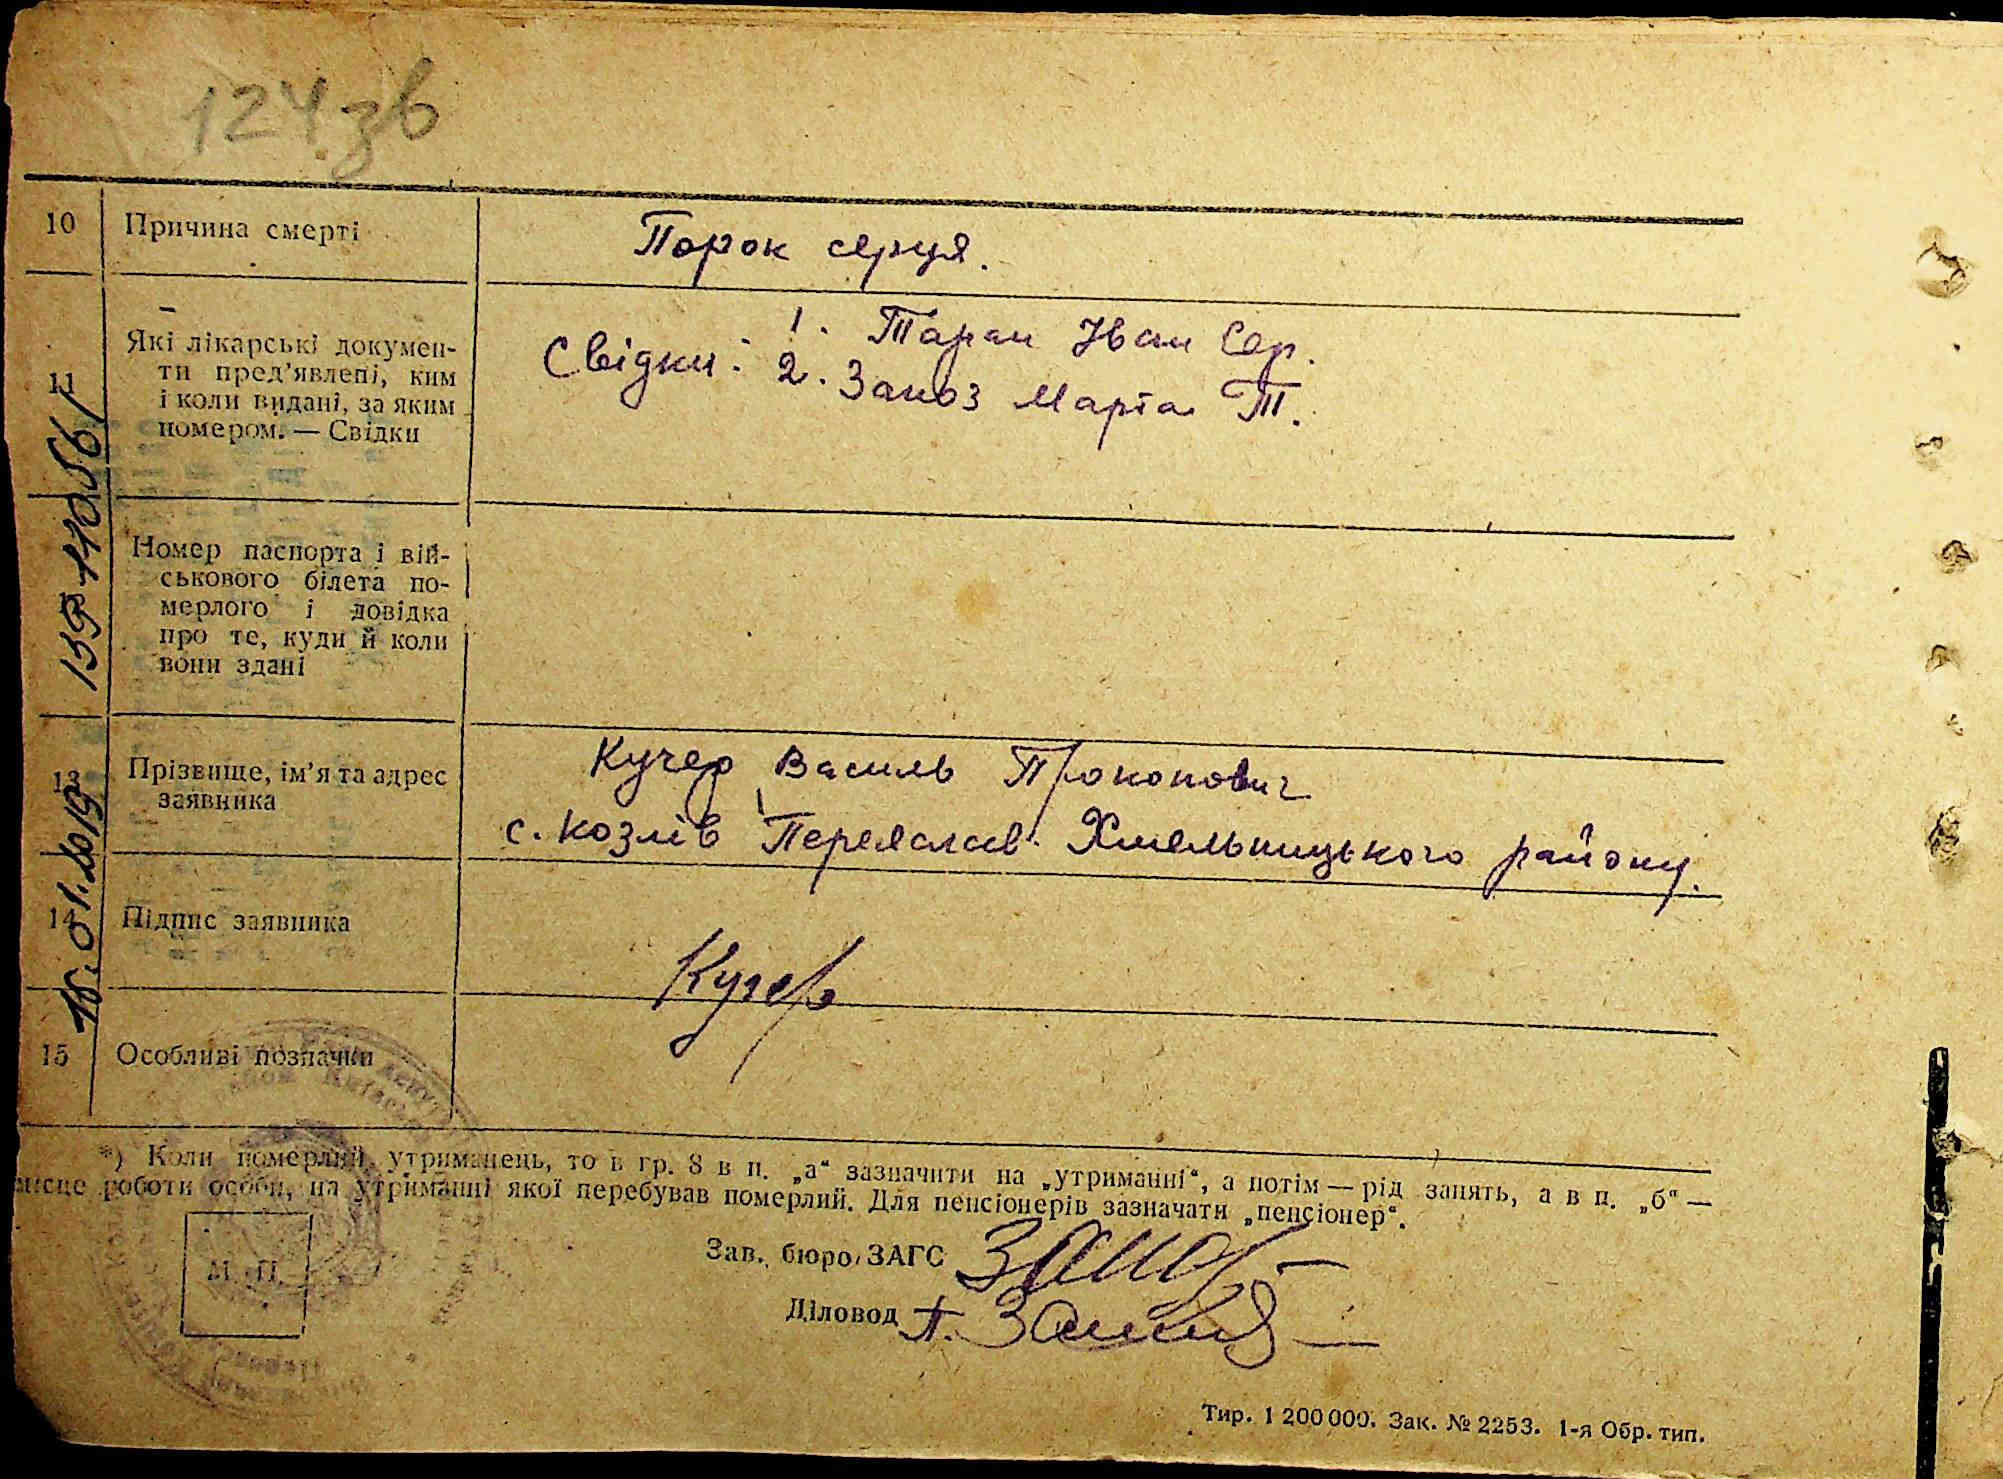 124зв
10 Причина смерті Порок серця.
11 Які лікарські докумен-
ти пред’явлені, ким
і коли видані, за яким
номером. — Свідки
Свідки: 1. Таран Іван Сер.
2. Заноз Марта Т.
Номер паспорта і вій-
ськового білета по-
мерлого і довідка
про те, куди й коли
вони здані
13 Прізвище, ім’я та адрес
заявника
Кучер Василь Прокопович
с. Козлів Переяслав-Хмельницького району.
14 Підпис заявника Кучер
15 Особливі позначки
*) Коли померлий, утриманець, то в гр. 8 в п. „а“ зазначити на „утриманні“, а потім — рід занять, а в п. „б“ —
місце роботи особи, на утриманні якої перебував померлий. Для пенсіонерів зазначати „пенсіонер“.
Зав. бюро ЗАГС
Діловод
М. П.
Тир. 1 200 000. Зак. № 2253. 1-я Обр. тип.
16.01.2019